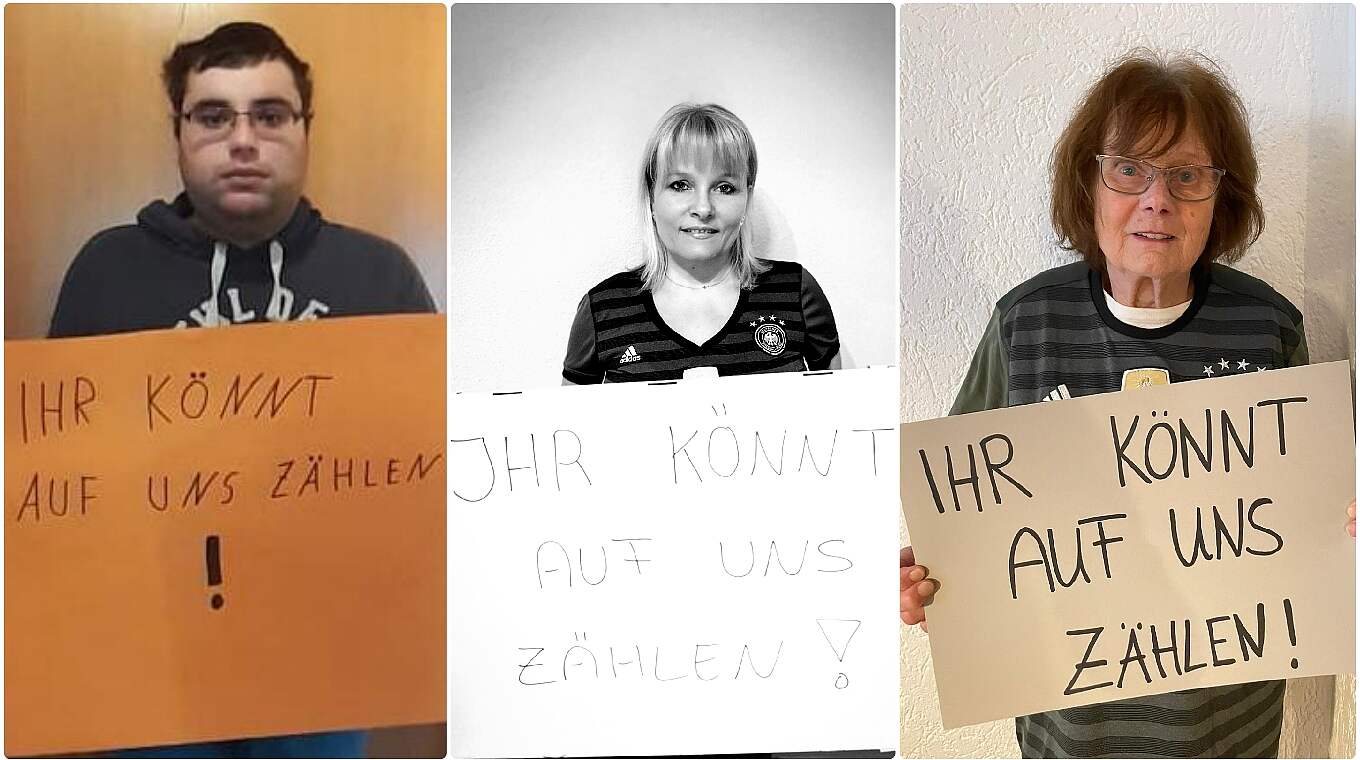 WILDE
IHR KÖNNT
AUF UNS ZÄHLEN
!
adidas
JHR KÖNNT
AUF UNS
ZÄHLEN!
IHR KÖNNT
AUF UNS
ZÄHLEN!